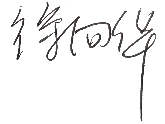 徐向华